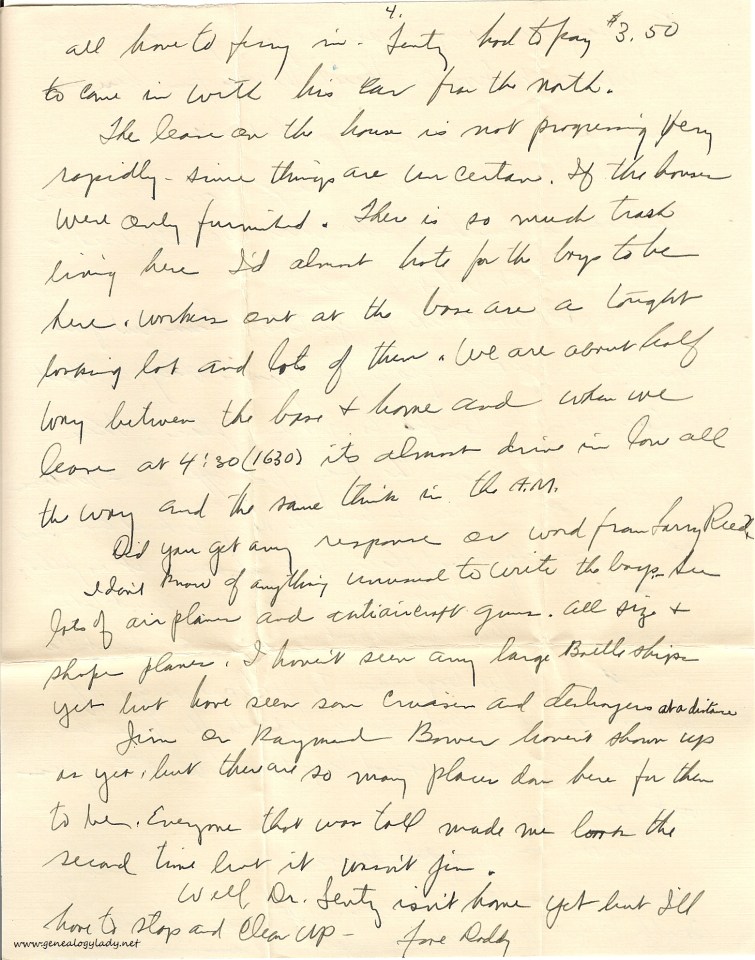 4.
all have to ferry in. Lentz had to pay $3.50
to come in with his car from the north.
The lease on the house is not progressing very
rapidly - since things are uncertain. If the house
were only furnished. There is so much trash
living here I'd almost hate for the boys to be
here. Workers out at the base are a tought
looking lot and lots of them. We are about half
way between the base + home and when we
leave at 4:30 (1630) its almost drive in low all
the way and the same think in the A.M.
Did you get any response or word from Larry Reed.
I don't know of anything unusual to write the boys. See
lots of air planes and antiaircraft guns. All size +
shape planes. I haven't seen any large Battle ships
yet but have seen some cruisers and destroyers at a distance
Jim or Raymond Bower haven't shown up
as yet, but there are so many places down here for them
to be. Everyone that was tall made me look the
second time but it wasn't Jim.
Well Dr. Lentz isn't home yet but I'll
have to stop and clean up - Love Daddy
www.genealogylady.net